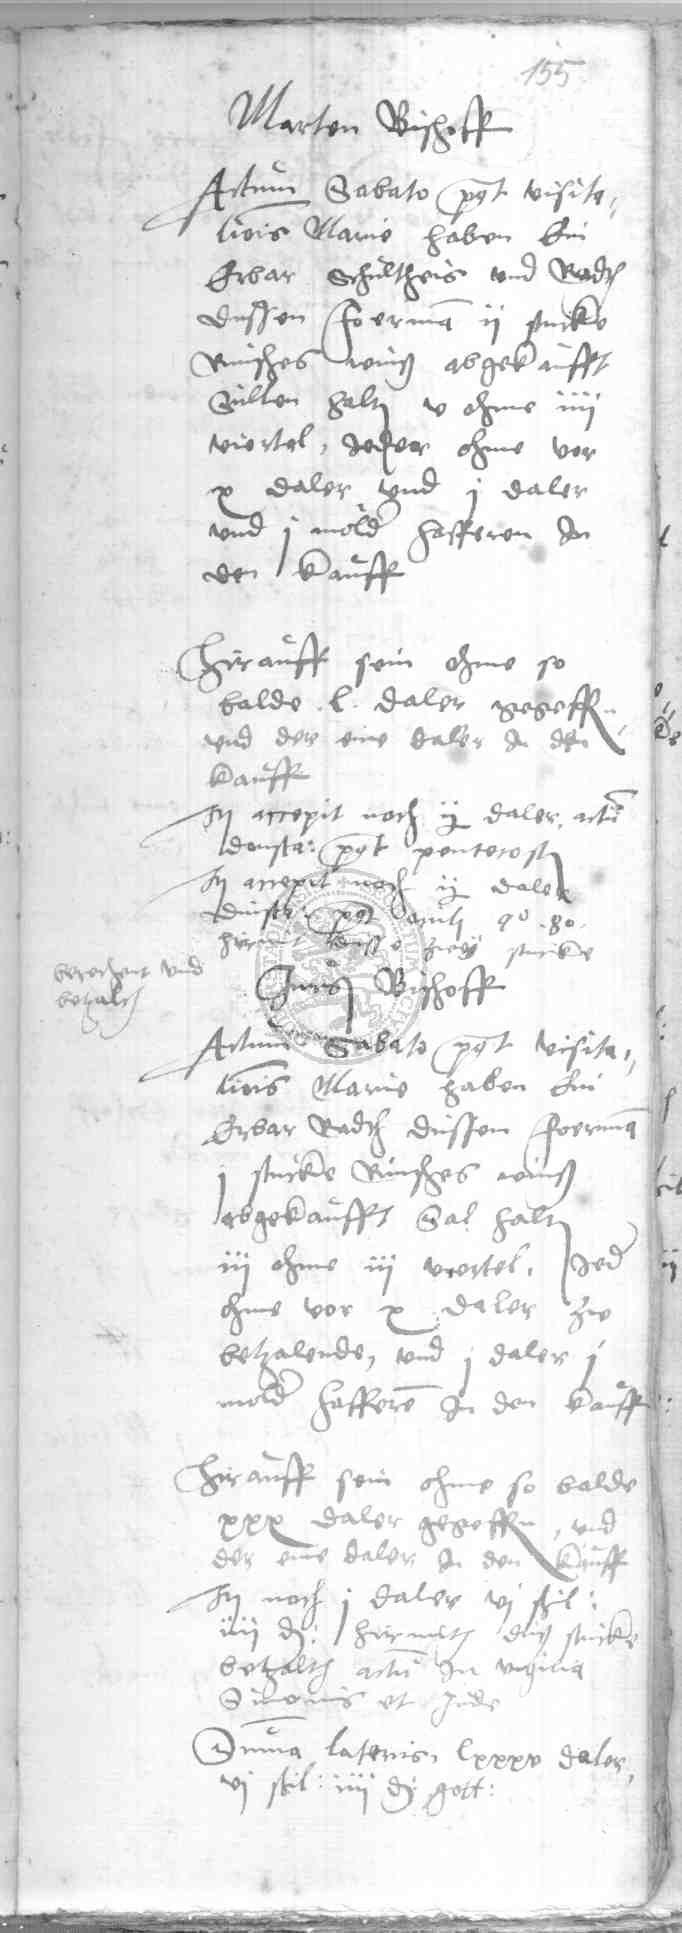 155
Marten Bischoff
Actum Sabato post visita,
tionis Marie haben Ein
Erbar Schultheis und Radth
dussen foerman ij stucke
Rinsches weins abgekaufft
Sullen halten v ohme iiij
viertel, Jeder ohme vor
x daler und j daler
und j molder hafferen In
den kauff
Hirauff sein ohme so
balde l daler gegeffen,
und der eine daler In den
kauff
Item accepit noch ij daler, actum
donsta: post pentecost
Item accepit noch ij daler
dinst: post 80.
hirmit disse zwey stucke
berechent und
betzalth
Bischoff
Actum Sabato post visita,
tionis Marie haben Ein
Erbar Radth dussem foerman
j stucke Rinsches weins
abgekaufft Sal halten
iij ohme iij viertel, Jeder
ohme vor x daler zu
betzalende, und j daler j
molder hafferen In den kauff
Hirauff sein ohme so balde
xxx daler gegeffen, und
der eine daler In den kauff
Item noch j daler vj schil:
iiij d: hirmith dis stucke
betzalth actum In vigilia
Simonis et Jude
Summa lateris, lxxxv daler,
vj schil: iiij d gott: